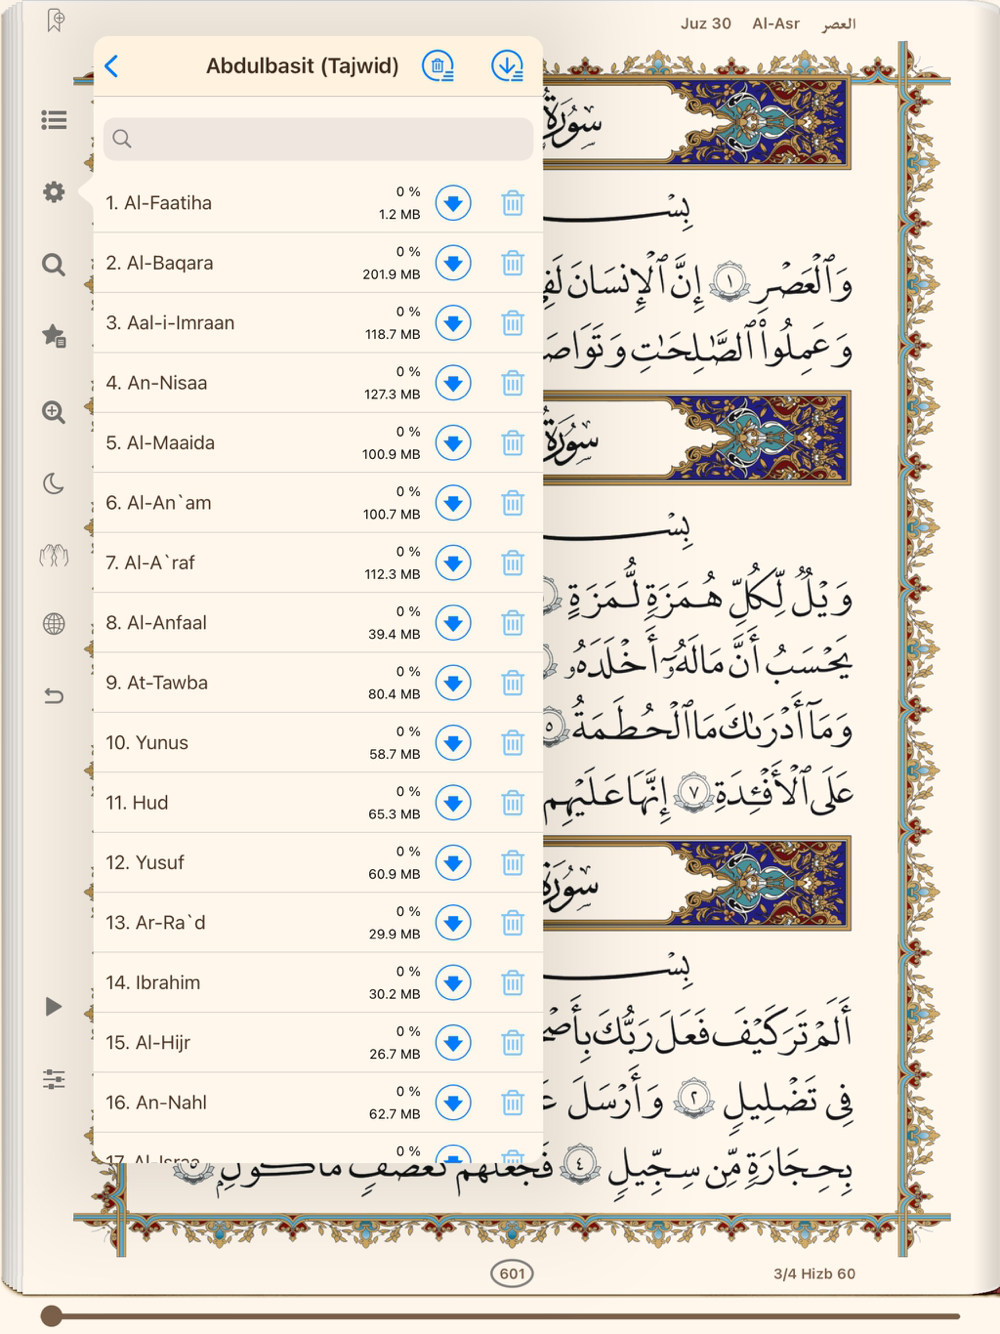 Juz 30 Al-Asr العصر
Abdulbasit (Tajwid)
1. Al-Faatiha 0 % 1.2 MB
2. Al-Baqara 0 % 201.9 MB
3. Aal-i-Imraan 0 % 118.7 MB
4. An-Nisaa 0 % 127.3 MB
5. Al-Maaida 0 % 100.9 MB
6. Al-An`am 0 % 100.7 MB
7. Al-A`raf 0 % 112.3 MB
8. Al-Anfaal 0 % 39.4 MB
9. At-Tawba 0 % 80.4 MB
10. Yunus 0 % 58.7 MB
11. Hud 0 % 65.3 MB
12. Yusuf 0 % 60.9 MB
13. Ar-Ra`d 0 % 29.9 MB
14. Ibrahim 0 % 30.2 MB
15. Al-Hijr 0 % 26.7 MB
16. An-Nahl 0 % 62.7 MB
17. Al-Israa 0 %
سُورَةُ
وَٱلْعَصْرِ ١ إِنَّ ٱلْإِنسَانَ
وَعَمِلُوا۟ ٱلصَّٰلِحَٰتِ
سُورَةُ
وَيْلٌ لِّكُلِّ هُمَزَةٍ لُّمَزَةٍ
يَحْسَبُ أَنَّ مَالَهُۥٓ أَخْلَدَهُۥ
وَمَآ أَدْرَىٰكَ مَا ٱلْحُطَمَةُ ٥
عَلَى ٱلْأَفْـِٔدَةِ ٧ إِنَّهَا عَلَيْهِم
سُورَةُ
أَلَمْ تَرَ كَيْفَ فَعَلَ رَبُّكَ
فِى تَضْلِيلٍ ٢ وَأَرْسَلَ
بِحِجَارَةٍ مِّن سِجِّيلٍ ٤ فَجَعَلَهُمْ كَعَصْفٍ مَّأْكُولٍۭ
601
3/4 Hizb 60